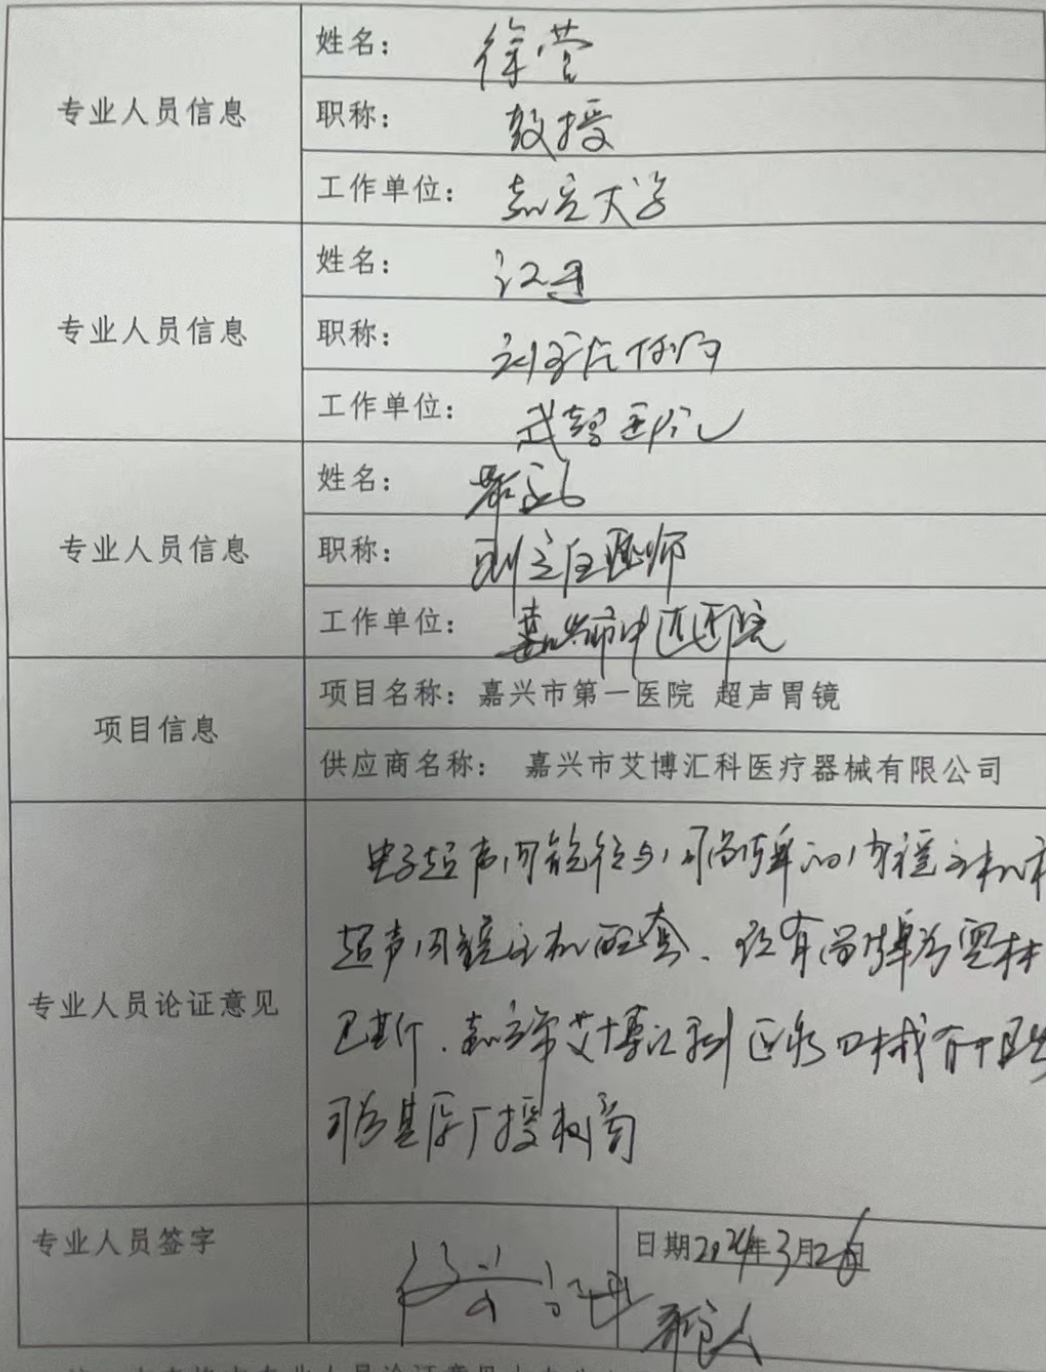 专业人员信息
姓名： 徐营
职称： 教授
工作单位： 大学
专业人员信息
姓名：
职称：
工作单位： 武警医院
专业人员信息
姓名：
职称： 副主任医师
工作单位： 嘉兴市中医医院
项目信息
项目名称：嘉兴市第一医院 超声胃镜
供应商名称： 嘉兴市艾博汇科医疗器械有限公司
专业人员论证意见
电子超声内镜 与 品牌的内镜主机
超声内镜主机配套、现有品牌为奥林
巴斯、 艾博汇科医疗器械有限
司为其原厂授权商
专业人员签字
日期2024年3月26日